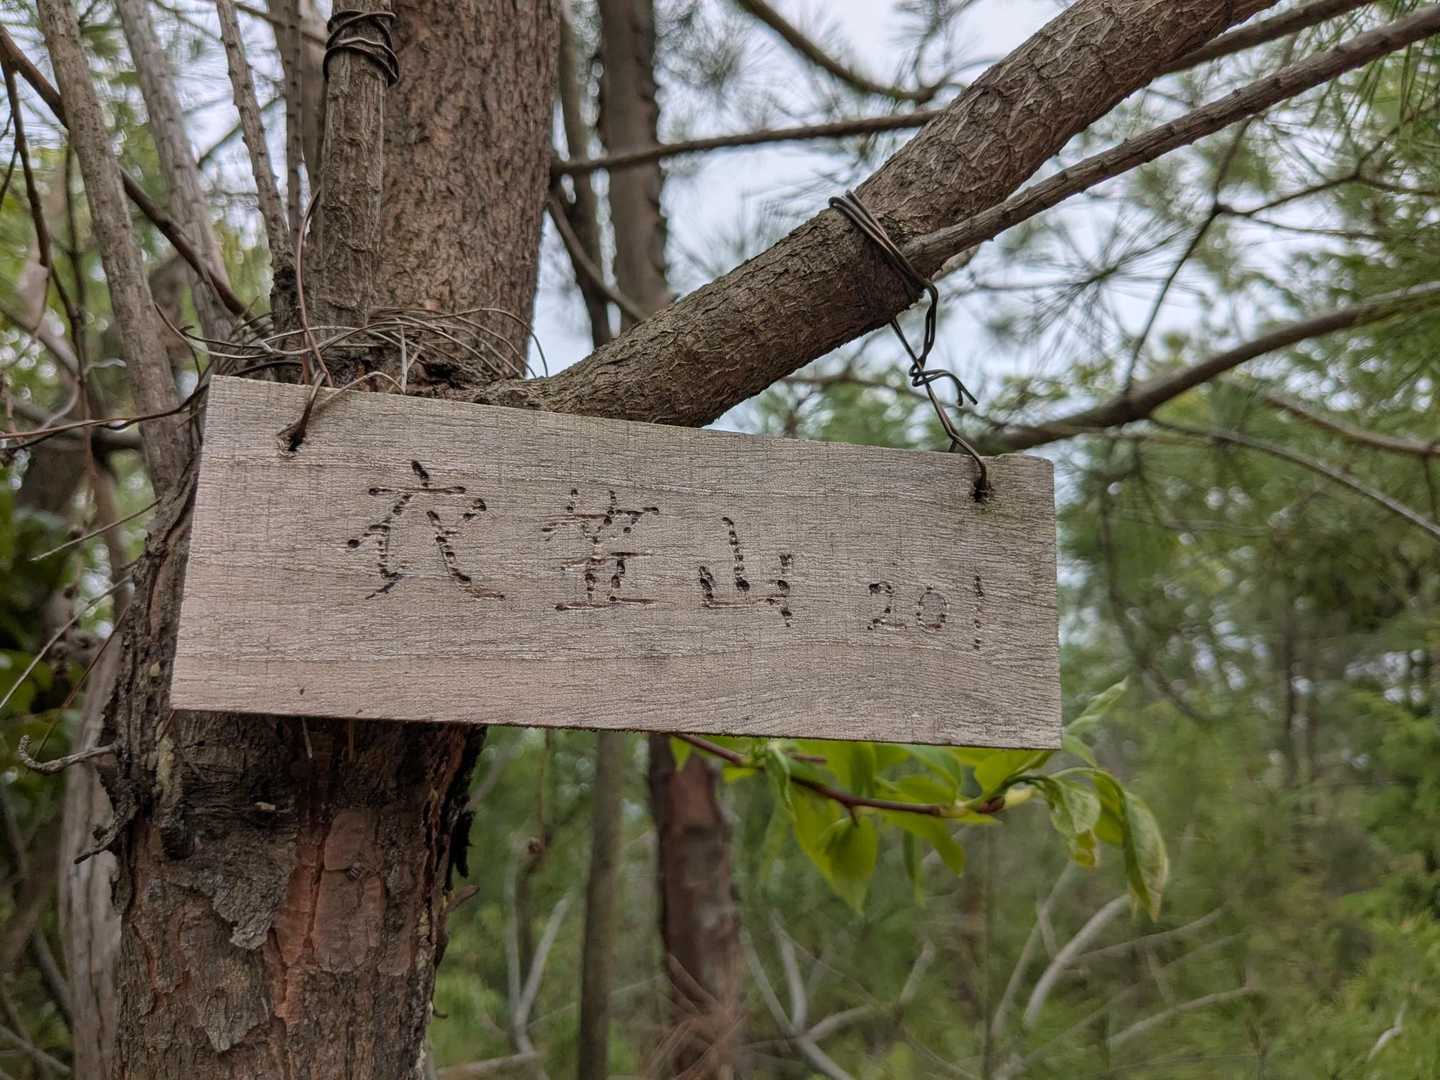 衣笠山 201